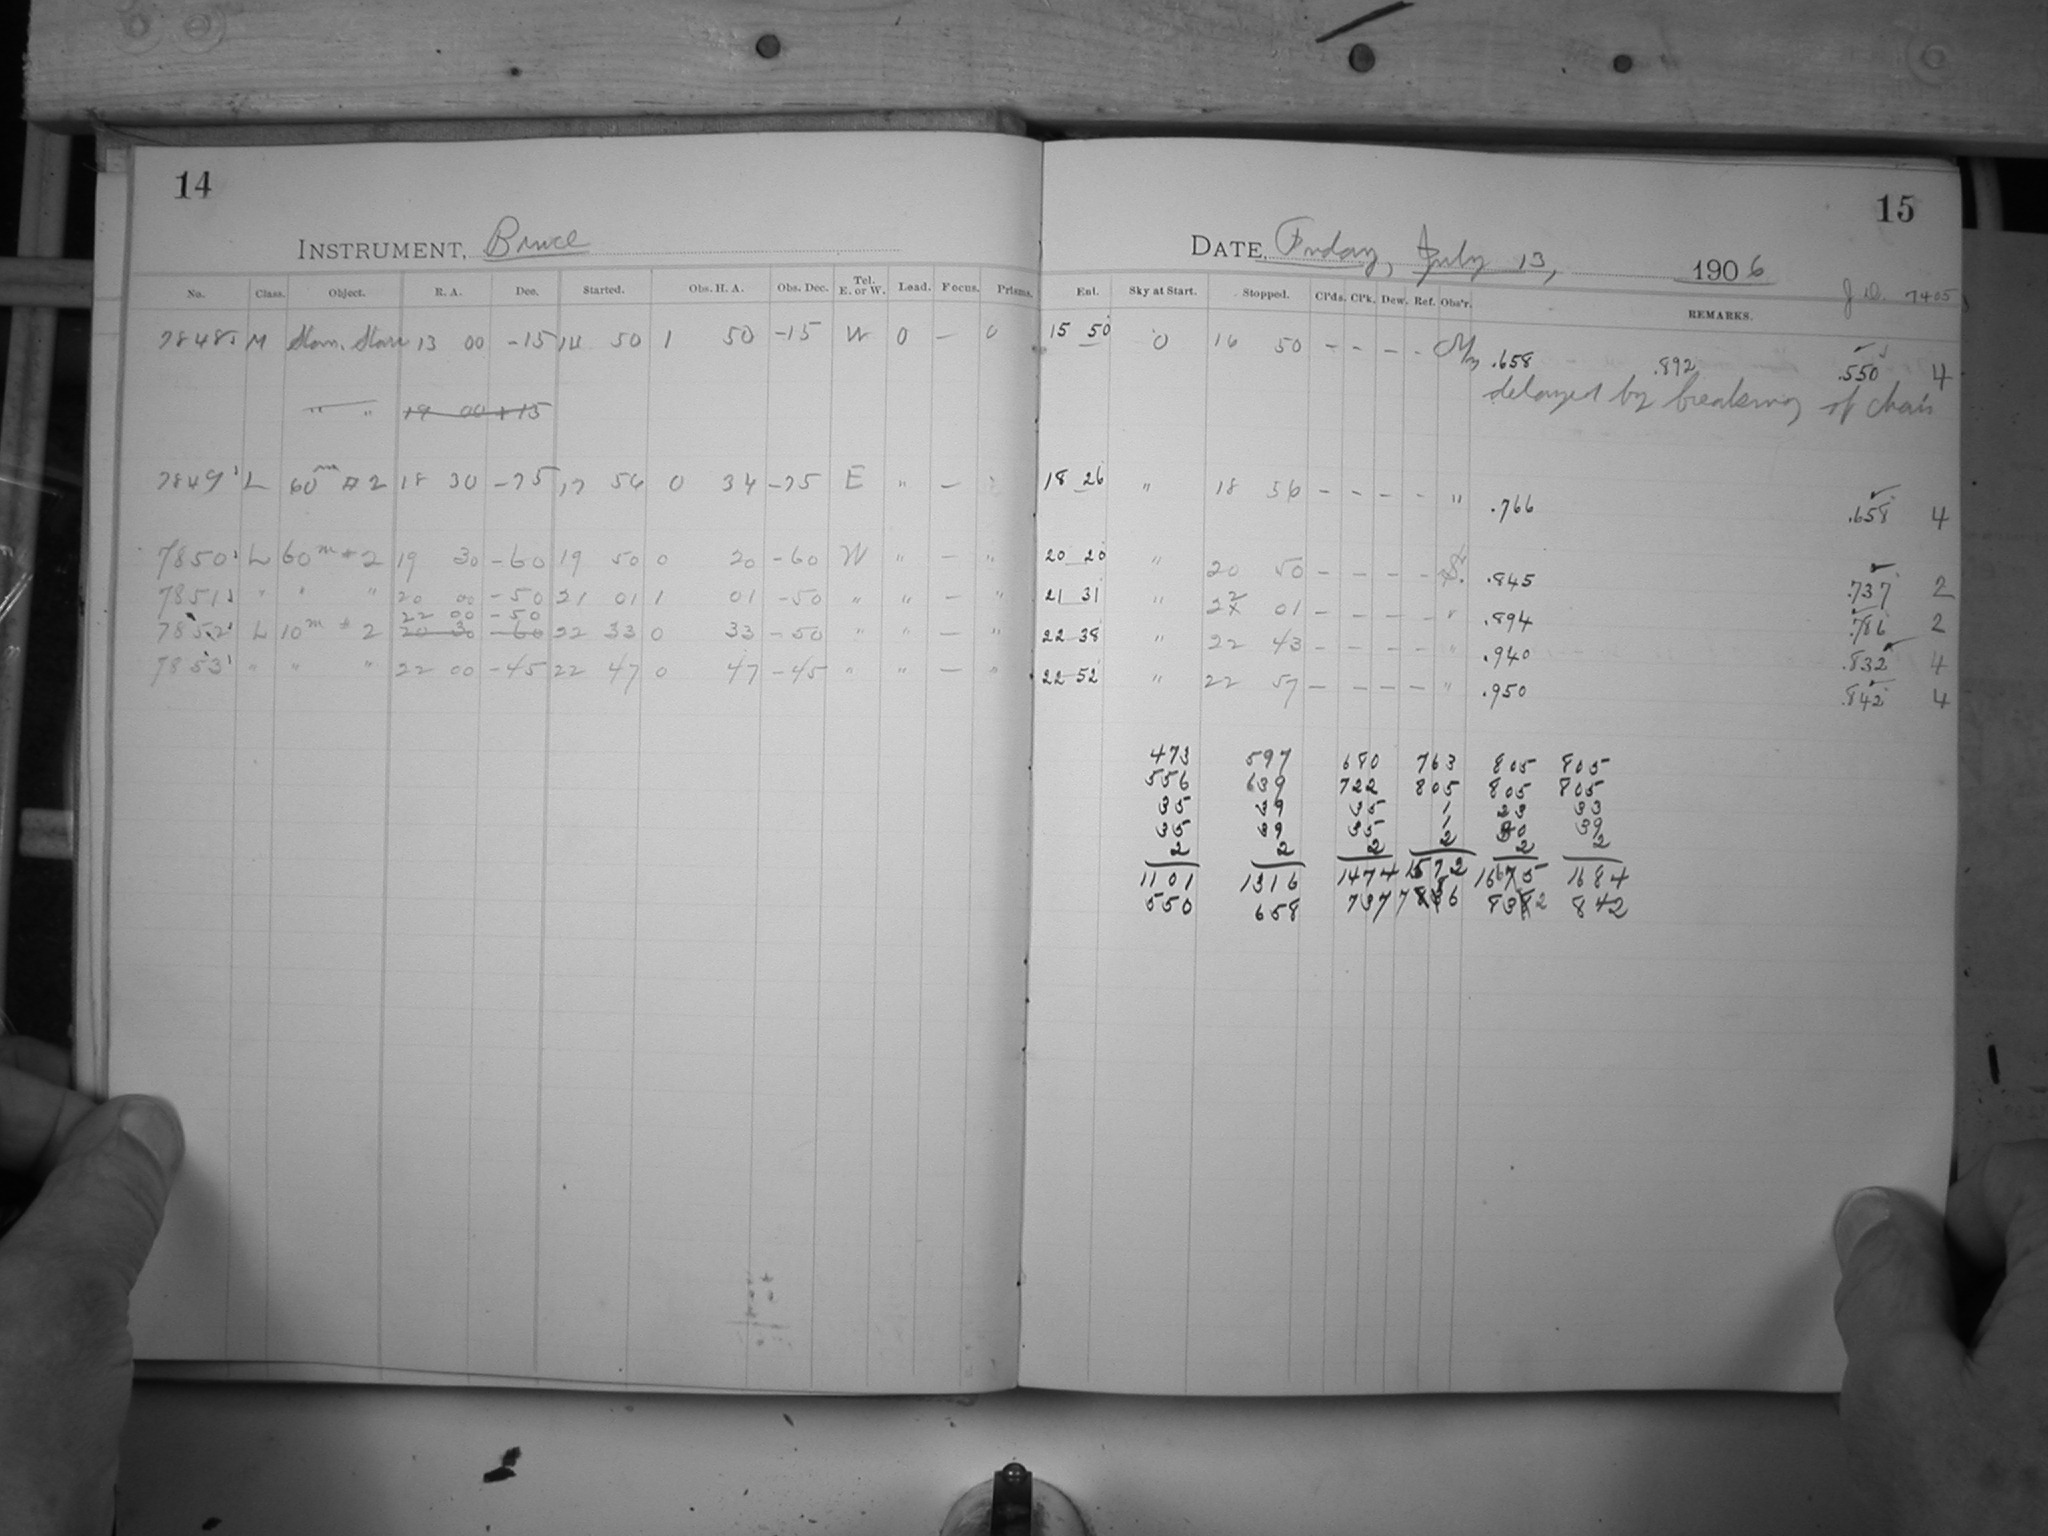 14
INSTRUMENT, Bruce
No. Class. Object. R. A. Dec. Started. Obs. H. A. Obs. Dec. Tel. E. or W. Lead. Focus. Prisms.
7848 M Stan. Stars 13 00 -15 14 50 1 50 -15 W 0 - 0
" " 19 00 +15
7849 L 60m #2 18 30 -75 17 56 0 34 -75 E " -
7850 L 60m #2 19 30 -60 19 50 0 20 -60 W " - "
7851 " " " 20 00 -50 21 01 1 01 -50 " " - "
22 00 -50
7852 L 10m #2 20 30 -60 22 33 0 33 -50 " " - "
7853 " " " 22 00 -45 22 47 0 47 -45 " " - "
15
DATE, Friday, July 13, 1906
J. D. 7405
Ent. Sky at Start. Stopped. Cl'ds. Cl'k. Dew. Ref. Obs'r. REMARKS.
15 50 0 16 50 - - - - .658 .892 .550 4
delayed by breaking of chain
18 26 " 18 56 - - - - " .766 .658 4
20 20 " 20 50 - - - - S. .845 .737 2
21 31 " 22 01 - - - - " .894 .786 2
22 38 " 22 43 - - - - " .940 .832 4
22 52 " 22 57 - - - - " .950 .842 4
473 597 680 763 805 805
556 639 722 805 805 805
35 39 35 1 23 33
35 39 35 1 30 39
2 2 2 2 2 2
1101 1316 1474 1572 1665 1684
550 658 737 786 832 842